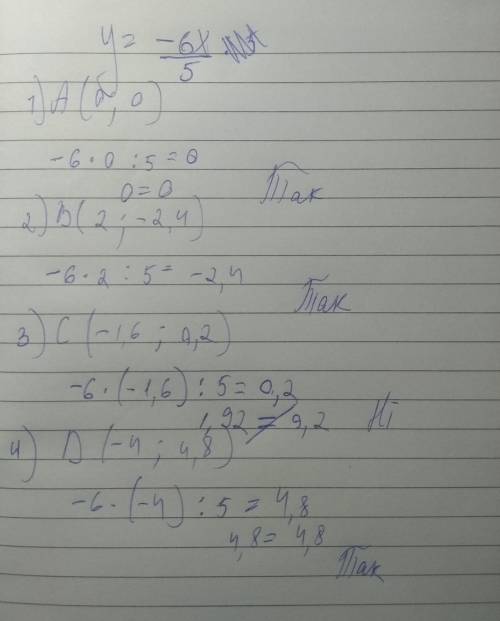 y = -6x/5
1) A (б; 0)
-6 · 0 : 5 = 0
0 = 0
Так
2) B (2 ; -2,4)
-6 · 2 : 5 = -2,4
Так
3) C (-1,6 ; 0,2)
-6 · (-1,6) : 5 = 0,2
1,92 ≠ 9,2
Ні
4) D (-4 ; 4,8)
-6 · (-4) : 5 = 4,8
4,8 = 4,8
Так